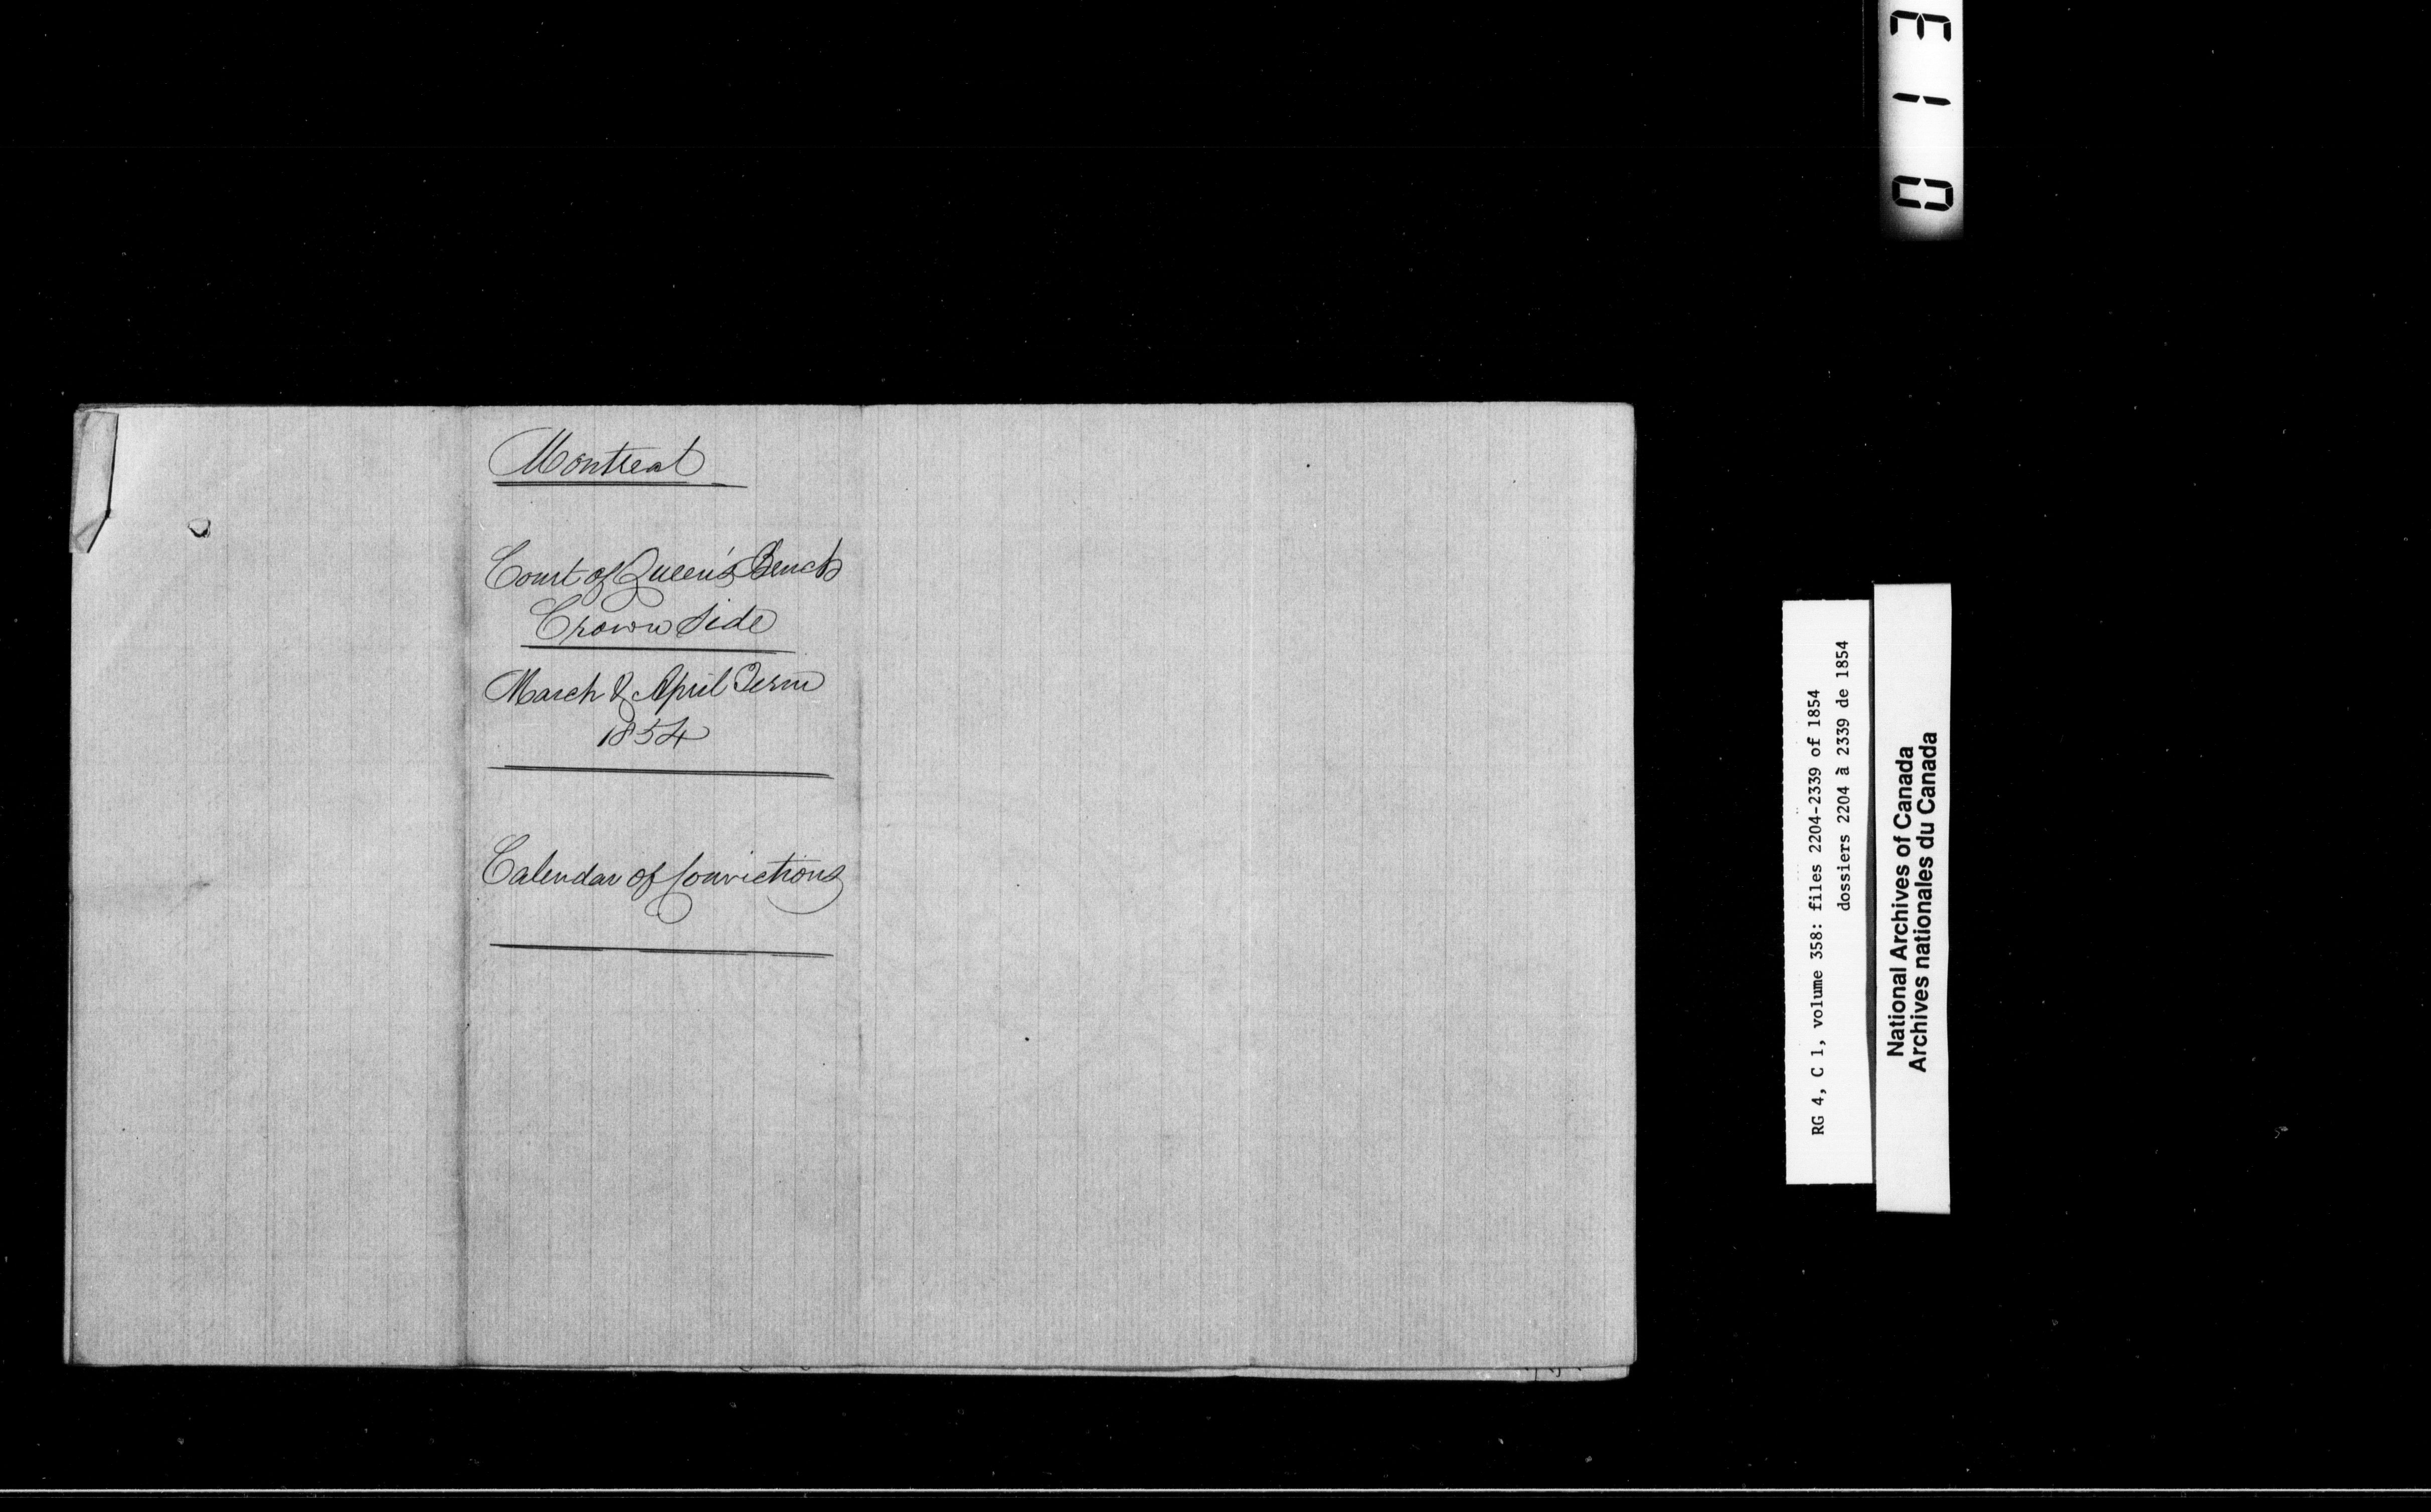 Montreal
Court of Queen's Bench
Crown Side
March & April Term
1854
Calendar of Convictions
RG 4, C 1, volume 358: files 2204-2339 of 1854
dossiers 2204 à 2339 de 1854
National Archives of Canada
Archives nationales du Canada
013